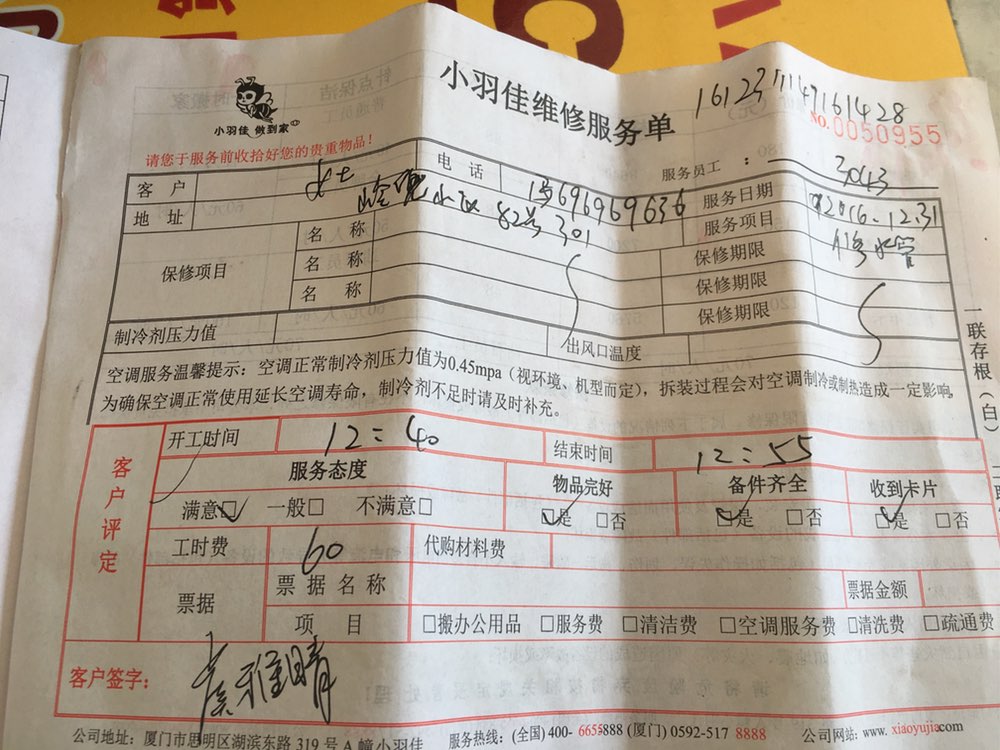 小羽佳维修服务单
161237149161428
小羽佳 做到家
NO.0050955
请您于服务前收拾好您的贵重物品！
服务员工 ： 3043
客户 女士 电话 服务日期 2016.12.31
地址 小区 82号301 服务项目 修水管
保修项目 名称 保修期限
名称 保修期限
名称 保修期限
制冷剂压力值 出风口温度
空调服务温馨提示：空调正常制冷剂压力值为0.45mpa（视环境、机型而定），拆装过程会对空调制冷或制热造成一定影响，
为确保空调正常使用延长空调寿命，制冷剂不足时请及时补充。
一联存根（白）
客户评定
开工时间 12:40 结束时间 12:55
服务态度 物品完好 备件齐全 收到卡片
满意□ 一般□ 不满意□ □是 □否 □是 □否 □是 □否
工时费 60 代购材料费
票据 票据名称 票据金额
项目 □搬办公用品 □服务费 □清洁费 □空调服务费 □清洗费 □疏通费
客户签字： 雅晴
公司地址：厦门市思明区湖滨东路 319 号 A 幢小羽佳 服务热线：(全国) 400- 6655888 (厦门) 0592-517 8888 公司网站: www. xiaoyujia.com